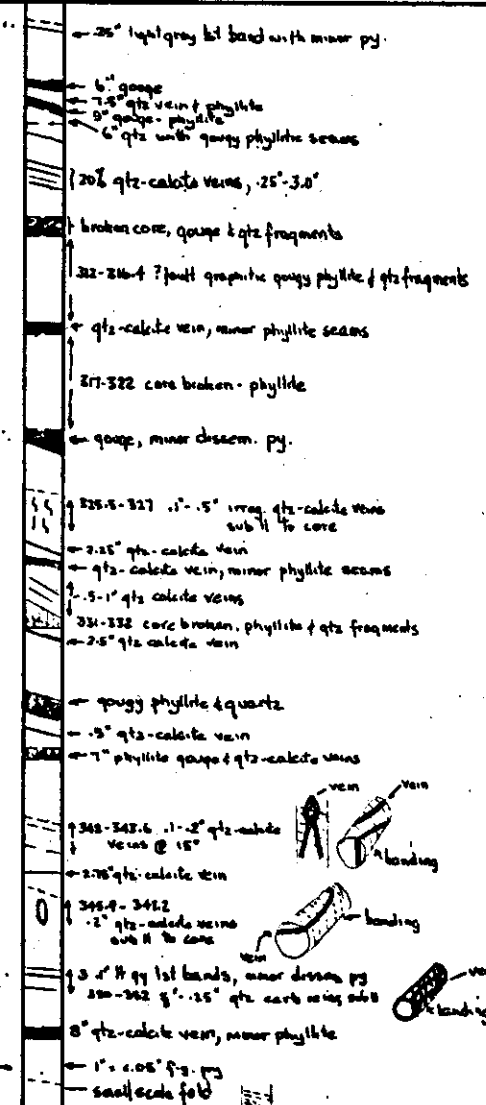 .25" light gray lst band with minor py.
6" gouge
7.5" qtz vein & phyllite
9" gouge - phyllite
6" qtz with gougy phyllitic seams
20% qtz-calcite veins, .25"-3.0"
broken core, gouge & qtz fragments
312-316.4 ? fault graphitic gougy phyllite & qtz fragments
qtz-calcite vein, minor phyllite seams
317-322 core broken - phyllite
gouge, minor dissem. py.
325.5-327 .1"-.5" irreg. qtz-calcite veins
sub || to core
2.25" qtz-calcite vein
qtz-calcite vein, minor phyllite seams
.5-1" qtz calcite veins
331-332 core broken, phyllite & qtz fragments
2.5" qtz calcite vein
gougy phyllite & quartz
.5" qtz-calcite vein
7" phyllite gouge & qtz-calcite veins
vein
vein
342-343.6 .1-.2" qtz-calcite
veins @ 15°
banding
2.75" qtz-calcite vein
.2" qtz-calcite veins
sub || to core
banding
vein
lt gy lst bands, minor dissem py
.25" qtz carb
banding
8" qtz-calcite vein, minor phyllite
f.g. py
small scale fold